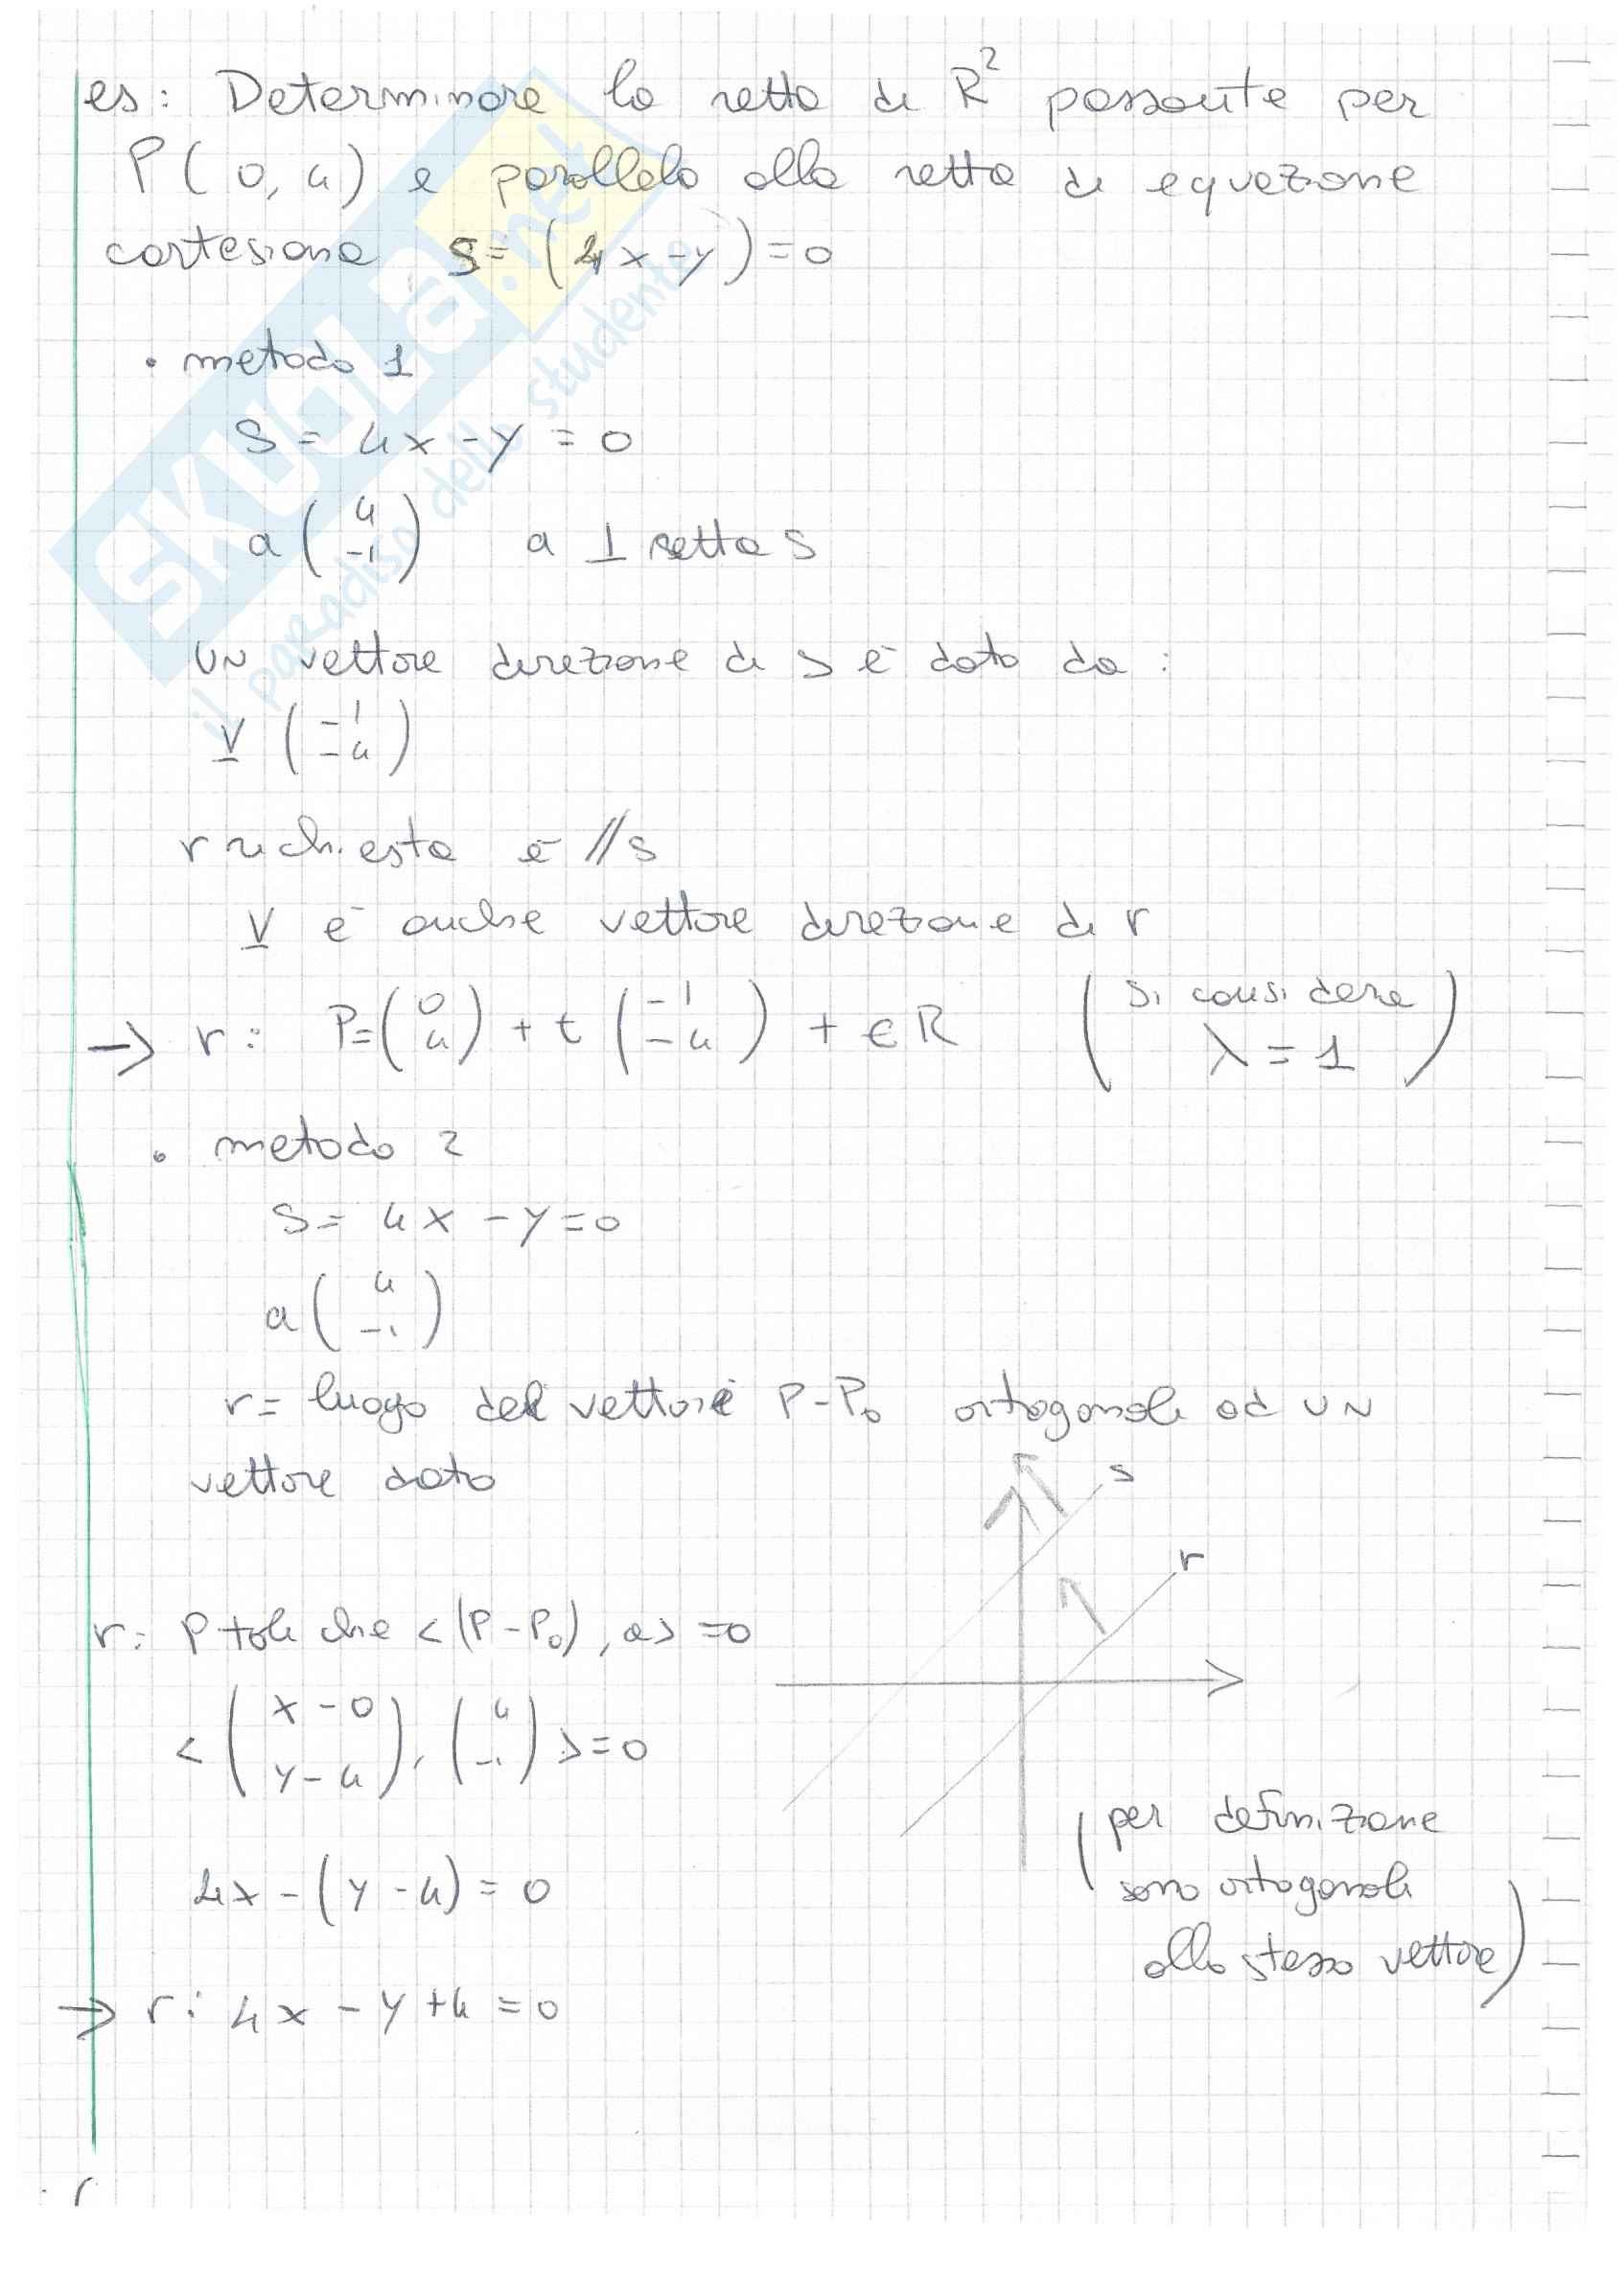 es: Determinare la retta di R²  passante per
P(0,4) e parallela alla retta di equazione
cartesiana S=(4x-y)=0
• metodo 1
S = 4x - y = 0
a (4 -1) a ⊥ retta s
UN vettore direzione di s è dato da :
v (-1 -4)
r richiesta è // s
v è anche vettore direzione di r
→ r: P=(0 4) + t (-1 -4) t ∈ R (si considera λ = 1)
• metodo 2
S= 4x - y=0
a (4 -1)
r= luogo dei vettori P-P₀ ortogonali ad UN
vettore dato
s
r
r: P tali che <(P-P₀), a> =0
<(x-0 y-4), (4 -1)>=0
(per definizione
sono ortogonali
allo stesso vettore)
4x-(y-4)=0
→ r: 4x - y +4 = 0
SKUOLA.net
il paradiso dello studente